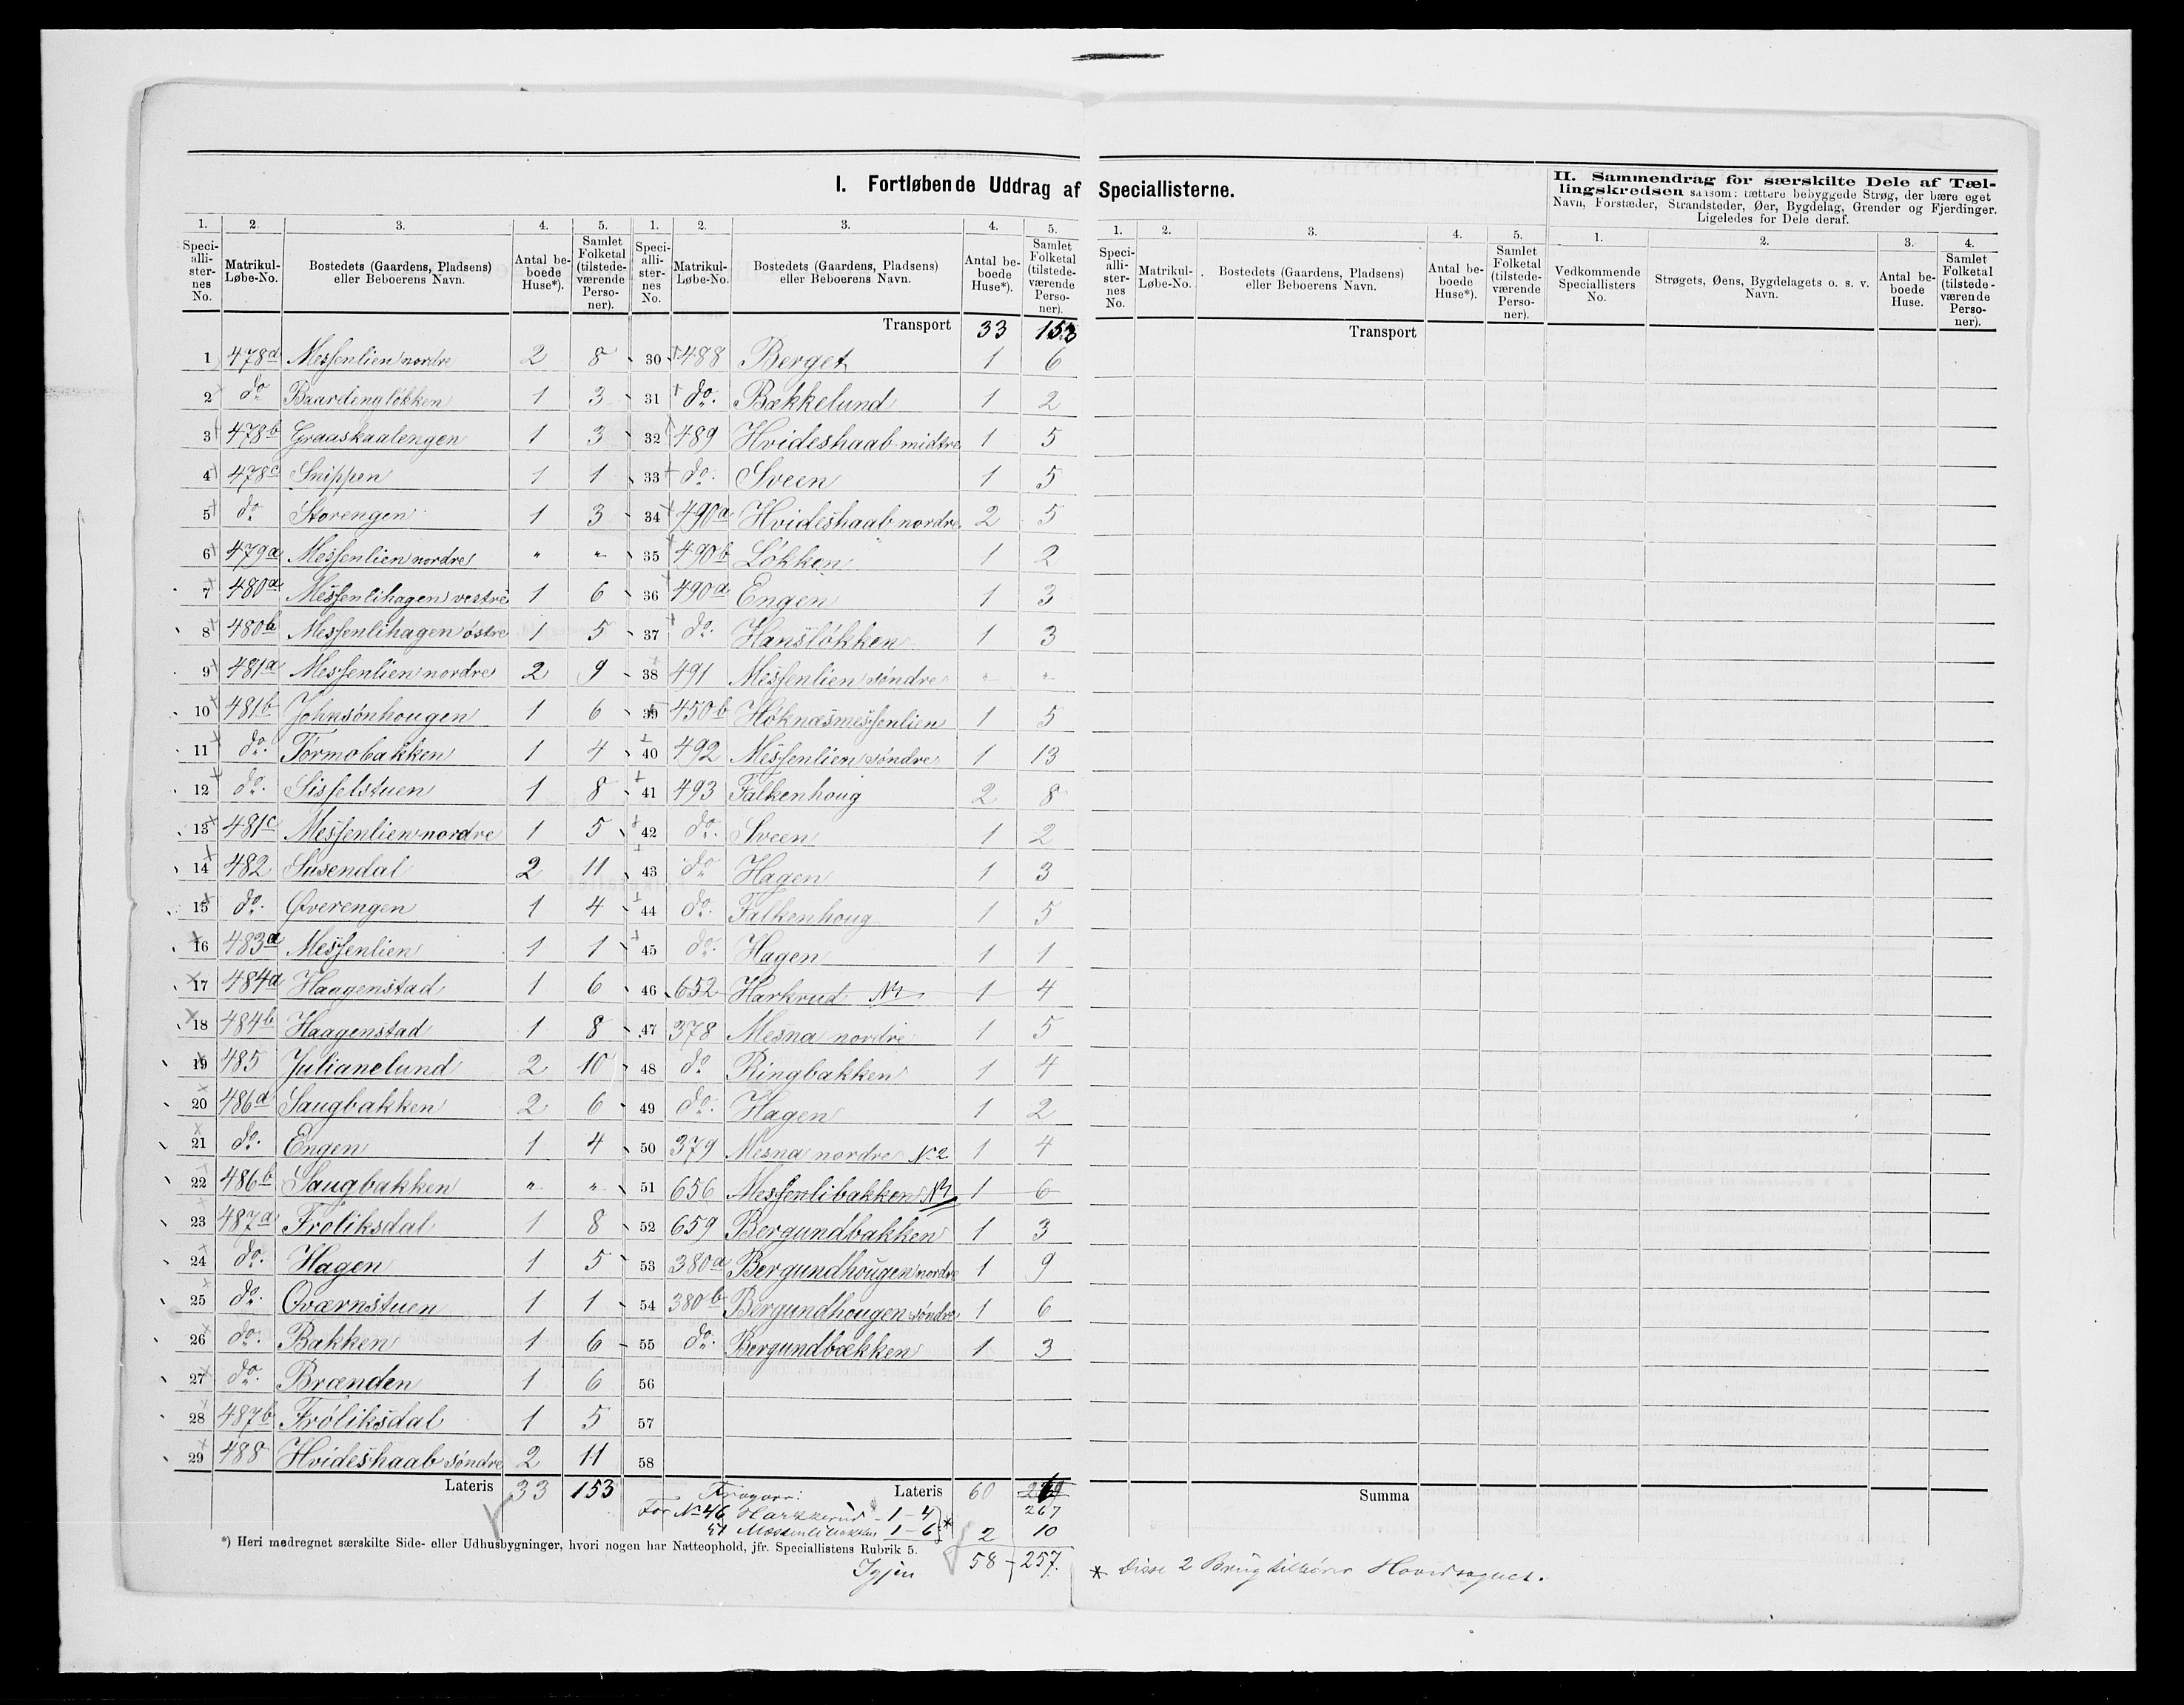 I. Fortløbende Uddrag af Speciallisterne.
1. 2. 3. 4. 5.
Speciallisternes No. Matrikul-Løbe-No. Bostedets (Gaardens, Pladsen) eller Beboerens Navn. Antal beboede Huse*). Samlet Folketal (tilstedeværende Personer).
1 478a Messenlien nordre 2 8
2 do Baardengløkken 1 3
3 478b Graaskaalengen 1 3
4 478c Snippen 1 1
5 do Storengen 1 3
6 479a Messenlien nordre " "
7 480a Messenlihagen vestre 1 6
8 480b Messenlihagen østre 1 5
9 481a Messenlien nordre 2 9
10 481b Johnsönhougen 1 6
11 do. Tormobakken 1 4
12 do. Sisselstuen 1 8
13 481c Messenlien nordre 1 5
14 482 Susendal 2 11
15 do. Øverengen 1 4
16 483a Messenlien 1 1
17 484a Haagenstad 1 6
18 484b Haagenstad 1 8
19 485 Julianelund 2 10
20 486a Saugbakken 2 6
21 do. Engen 1 4
22 486b Saugbakken " "
23 487a Froliksdal 1 8
24 do. Hagen 1 5
25 do. Qværnstuen 1 1
26 do. Bakken 1 6
27 do. Brænden 1 6
28 487b Fröliksdal 1 5
29 488 Hvideshaab söndre 2 11
Lateris 33 153
1. 2. 3. 4. 5.
Speciallisternes No. Matrikul-Løbe-No. Bostedets (Gaardens, Pladsen) eller Beboerens Navn. Antal beboede Huse*). Samlet Folketal (tilstedeværende Personer).
Transport 33 153
30 488 Berget 1 6
31 do. Bækkelund 1 2
32 489 Hvideshaab midtre 1 5
33 do. Sveen 1 5
34 490a Hvideshaab nordre 2 5
35 490b Løkken 1 2
36 490a Engen 1 3
37 do. Hansløkken 1 3
38 491 Messenlien søndre " "
39 450b Höknæsmessenlien 1 5
40 492 Messenlien söndre 1 13
41 493 Falkenhoug 2 8
42 do. Sveen 1 2
43 do Hagen 1 3
44 do. Falkenhoug 1 5
45 do. Hagen 1 1
46 652 Harkrud No 1 1 4
47 378 Mesna nordre 1 5
48 do Ringbakken 1 4
49 do. Hagen 1 2
50 379 Mesna nordre No 2 1 4
51 656 Messenlibakken No 1 1 6
52 659 Bergundbakken 1 3
53 380a Bergundhougen nordre 1 9
54 380b Bergundhougen søndre 1 6
55 do. Bergundbækken 1 3
56
57
58
Lateris 60
267
Fragaar:
For No 46 Harkkerud 1 - 4
51 Messenlibakken 1 - 6 * 2 10
Igjen 58 - 257.
*) Heri medregnet særskilte Side- eller Udhusbygninger, hvori nogen har Natteophold, jfr. Speciallistens Rubrik 5.
1. 2. 3. 4. 5.
Speciallisternes No. Matrikul-Løbe-No. Bostedets (Gaardens, Pladsen) eller Beboerens Navn. Antal beboede Huse*). Samlet Folketal (tilstedeværende Personer).
Transport
Summa
* Disse 2 Brug tilhører Hovedsognet.
II. Sammendrag for særskilte Dele af Tællingskredsen saasom: tættere bebyggede Strøg, der bære eget
Navn, Forstæder, Strandsteder, Øer, Bygdelag, Grender og Fjerdinger.
Ligeledes for Dele deraf.
1. 2. 3. 4.
Vedkommende Speciallisters No. Strøgets, Øens, Bygdelagets o. s. v. Navn. Antal beboede Huse. Samlet Folketal (tilstedeværende Personer).